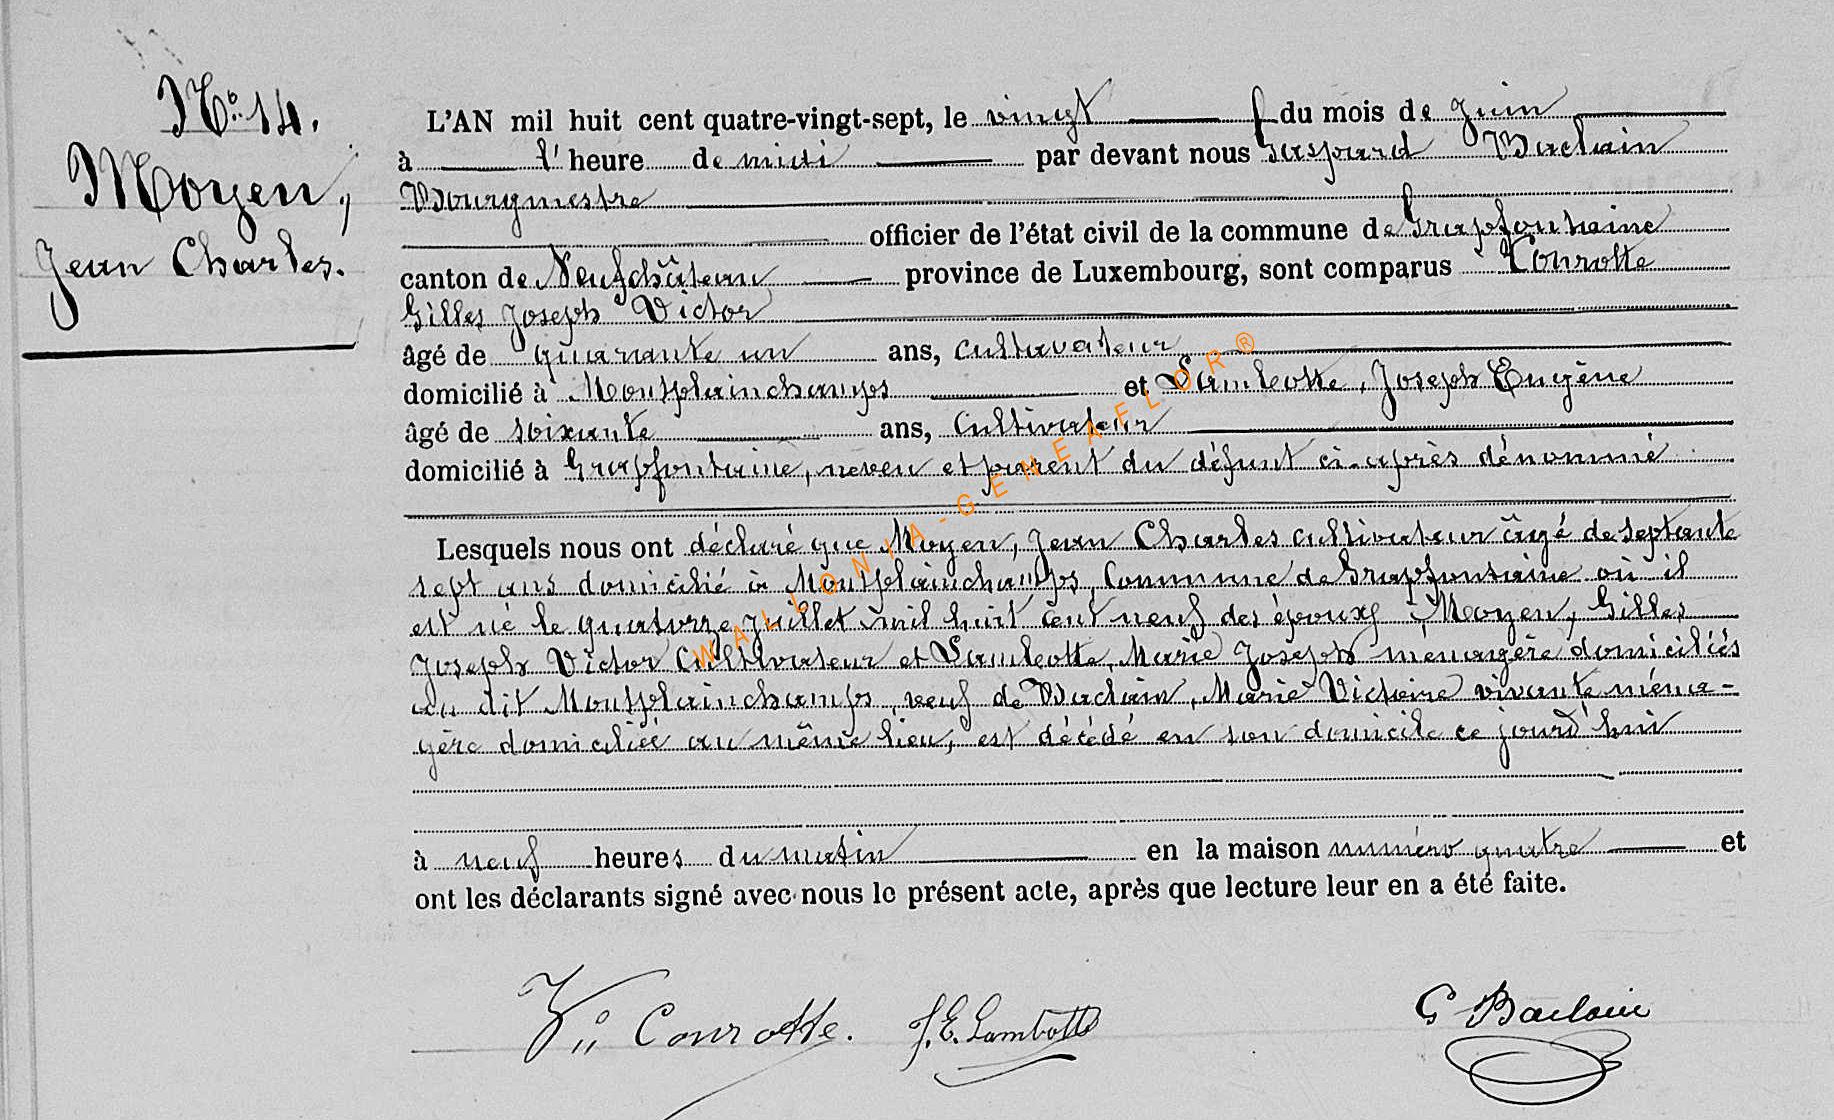 N° 14.
Moyen,
Jean Charles.
L'AN mil huit cent quatre-vingt-sept, le vingt du mois de Juin
à l' heure de midi par devant nous Gaspard Baclain
Bourgmestre
officier de l'état civil de la commune de Grapfontaine
canton de Neufchâteau province de Luxembourg, sont comparus Conrotte
Gilles Joseph Victor
âgé de quarante un ans, cultivateur
domicilié à Montplainchamps et Lambotte, Joseph Eugène
âgé de soixante ans, cultivateur
domicilié à Grapfontaine, neveu et parent du défunt ci-après dénommé
Lesquels nous ont déclaré que Moyen, Jean Charles cultivateur âgé de septante
sept ans domicilié à Montplainchamps, Commune de Grapfontaine où il
est né le quatorze Juillet mil huit cent neuf des époux Moyen, Gilles
Joseph Victor Cultivateur et Lambotte, Marie Joseph ménagère domiciliés
au dit Montplainchamps, veuf de Baclain, Marie Victoire vivante ména-
gère domiciliée au même lieu, est décédé en son domicile ce jourd'hui
à neuf heures du matin en la maison numéro quatre et
ont les déclarants signé avec nous le présent acte, après que lecture leur en a été faite.
Conrotte. J. E. Lambotte G Baclain
WALLONIA-GENEAFLOR®